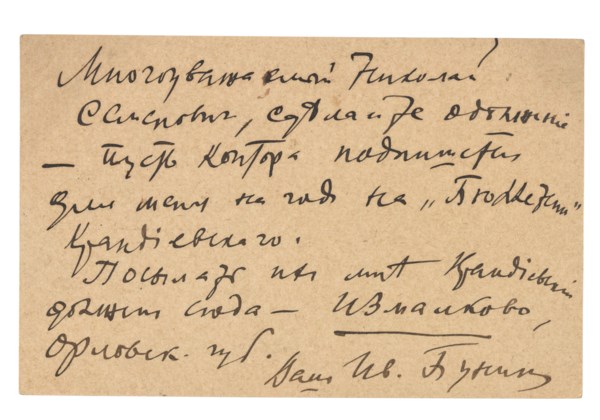 Многоуважаемый Николай
Семенович, сдѣлайте одолженіе
— пусть Контора подпишется
для меня на годъ на „Бюллетени"
Крандіевскаго.
Посылать ихъ мнѣ Крандіевскій
долженъ сюда — Измалково,
Орловск. губ.
Вашъ Ив. Бунинъ